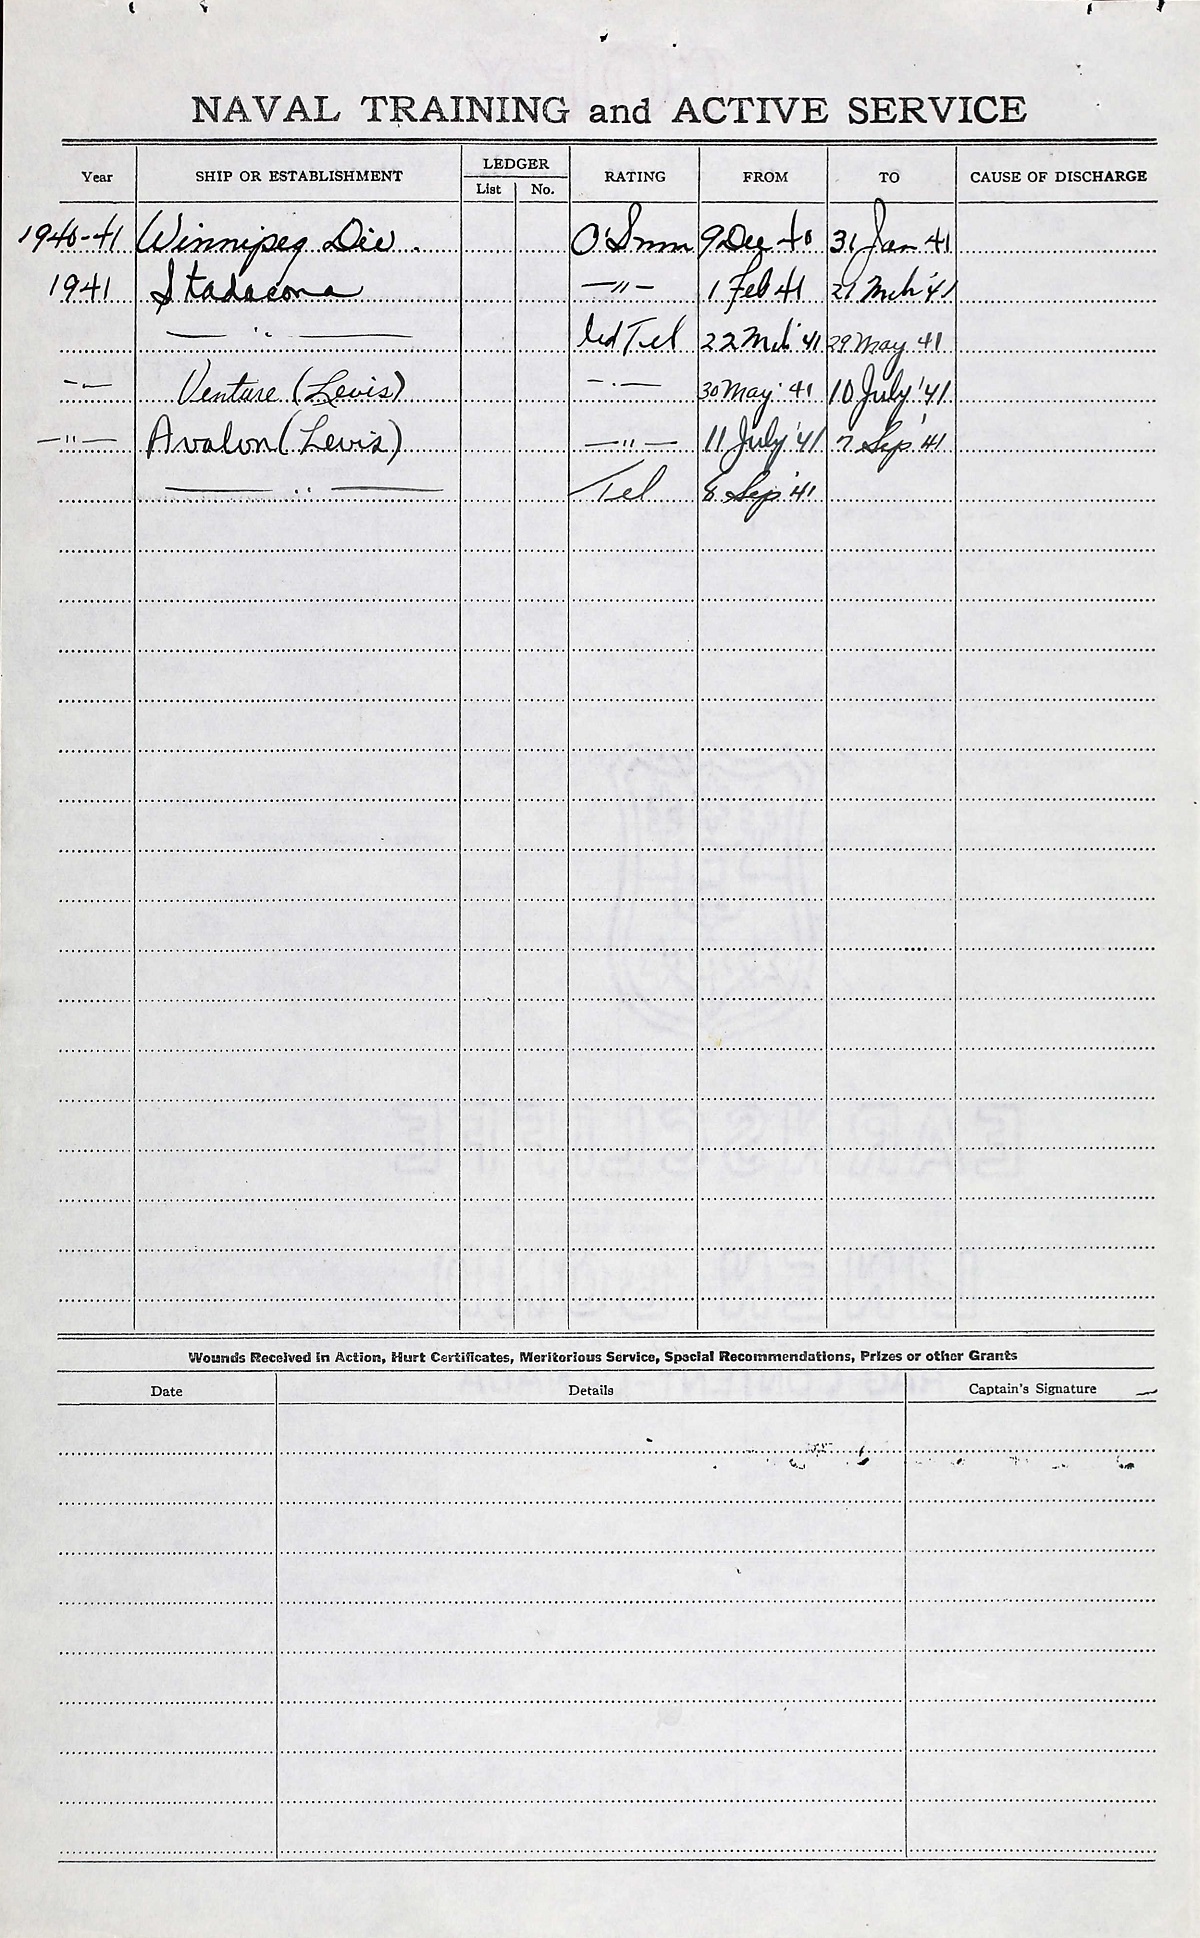 NAVAL TRAINING and ACTIVE SERVICE
Year SHIP OR ESTABLISHMENT LEDGER List No. RATING FROM TO CAUSE OF DISCHARGE
1940-41 Winnipeg Div. O'Smn 9 Dec 40 31 Jan 41
1941 Stadacona —"— 1 Feb 41 21 Mch '41
— " — Ord Tel 22 Mch '41 29 May 41
—"— Venture (Levis) —"— 30 May '41 10 July '41
—"— Avalon (Levis) —"— 11 July '41 7 Sep '41
— " — Tel 8 Sep '41
Wounds Received in Action, Hurt Certificates, Meritorious Service, Special Recommendations, Prizes or other Grants
Date Details Captain's Signature